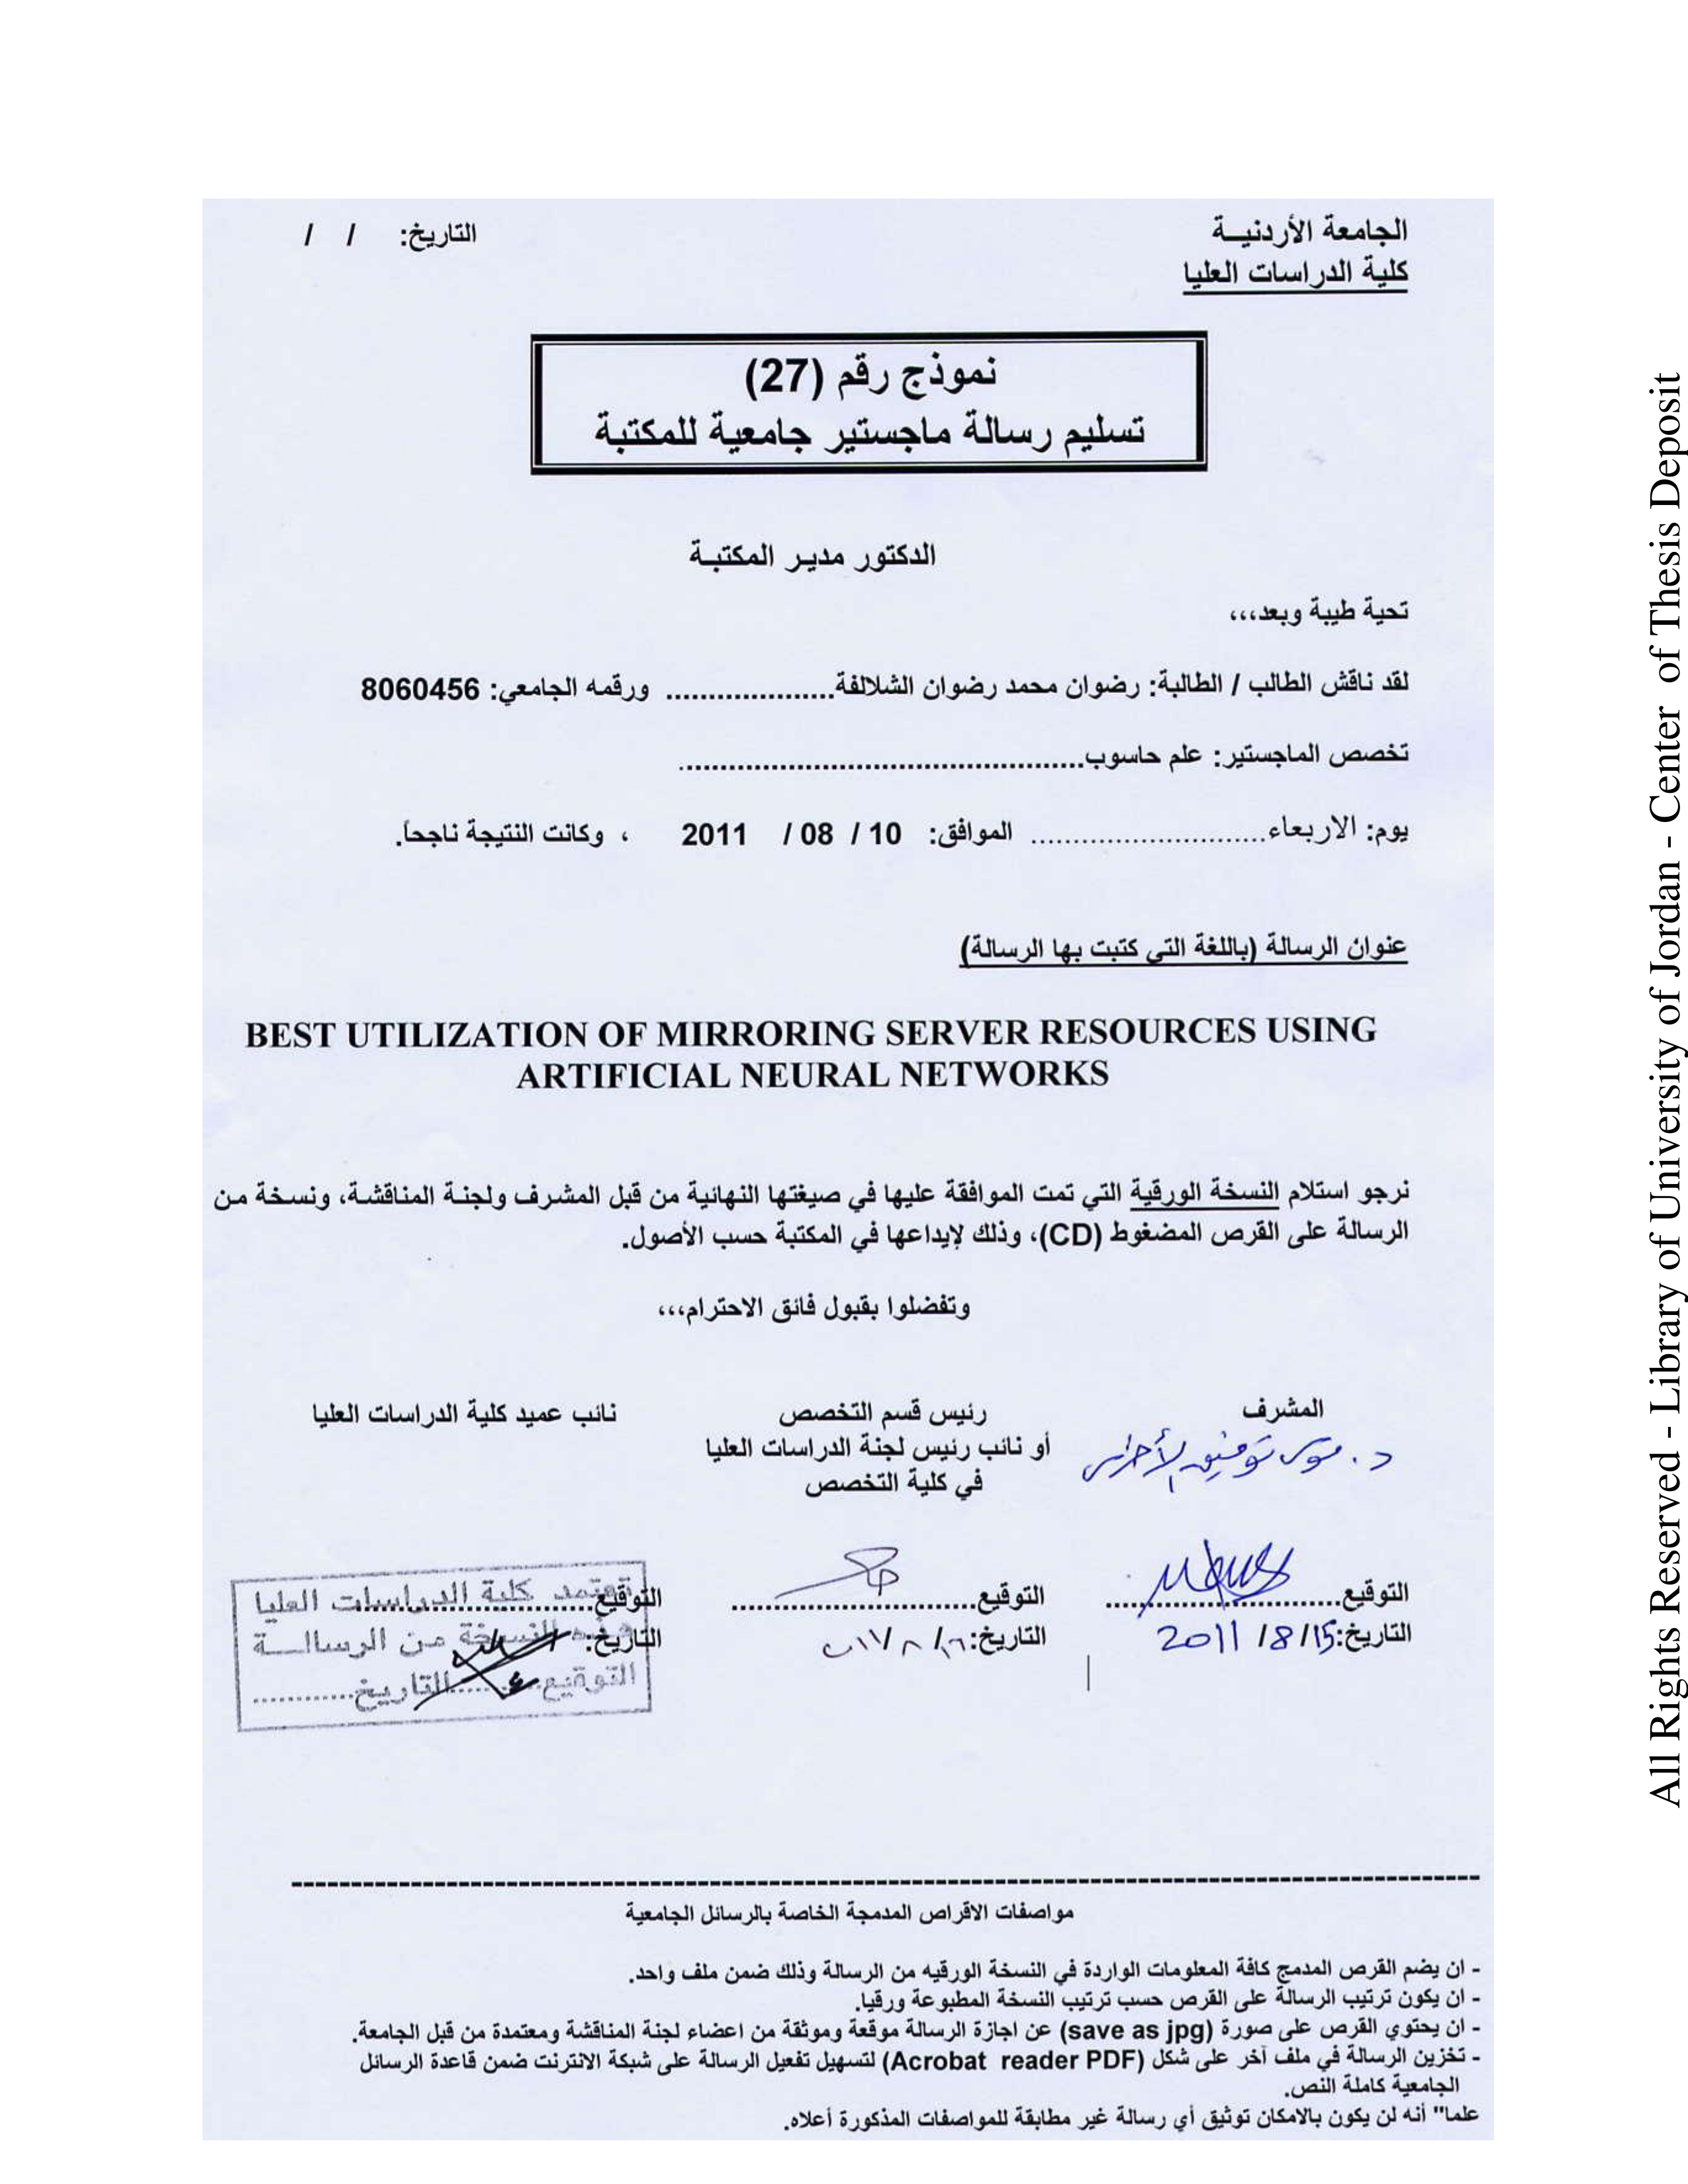 الجامعة الأردنيـة
كلية الدراسات العليا
التاريخ: / /
نموذج رقم (27)
تسليم رسالة ماجستير جامعية للمكتبة
الدكتور مدير المكتبة
تحية طيبة وبعد،،،
لقد ناقش الطالب / الطالبة: رضوان محمد رضوان الشلالفة.................... ورقمه الجامعي: 8060456
تخصص الماجستير: علم حاسوب................................................
يوم: الاربعاء............................ الموافق: 10 / 08 / 2011 ، وكانت النتيجة ناجحاً.
عنوان الرسالة (باللغة التي كتبت بها الرسالة)
BEST UTILIZATION OF MIRRORING SERVER RESOURCES USING
ARTIFICIAL NEURAL NETWORKS
نرجو استلام النسخة الورقية التي تمت الموافقة عليها في صيغتها النهائية من قبل المشرف ولجنة المناقشة، ونسخة من
الرسالة على القرص المضغوط (CD)، وذلك لإيداعها في المكتبة حسب الأصول.
وتفضلوا بقبول فائق الاحترام،،،
المشرف
د. موسى توفيق الأخرس
التوقيع............................
التاريخ: 15/ 8/ 2011
رئيس قسم التخصص
أو نائب رئيس لجنة الدراسات العليا
في كلية التخصص
التوقيع............................
التاريخ:
نائب عميد كلية الدراسات العليا
التوقيع............................
التاريخ:
تعتمد كلية الدراسات العليا
هذه النسخة من الرسالـــة
التوقيع..........التاريخ............
مواصفات الاقراص المدمجة الخاصة بالرسائل الجامعية
- ان يضم القرص المدمج كافة المعلومات الواردة في النسخة الورقيه من الرسالة وذلك ضمن ملف واحد.
- ان يكون ترتيب الرسالة على القرص حسب ترتيب النسخة المطبوعة ورقيا.
- ان يحتوي القرص على صورة (save as jpg) عن اجازة الرسالة موقعة وموثقة من اعضاء لجنة المناقشة ومعتمدة من قبل الجامعة.
- تخزين الرسالة في ملف آخر على شكل (Acrobat reader PDF) لتسهيل تفعيل الرسالة على شبكة الانترنت ضمن قاعدة الرسائل
الجامعية كاملة النص.
علما" أنه لن يكون بالامكان توثيق أي رسالة غير مطابقة للمواصفات المذكورة أعلاه.
All Rights Reserved - Library of University of Jordan - Center of Thesis Deposit